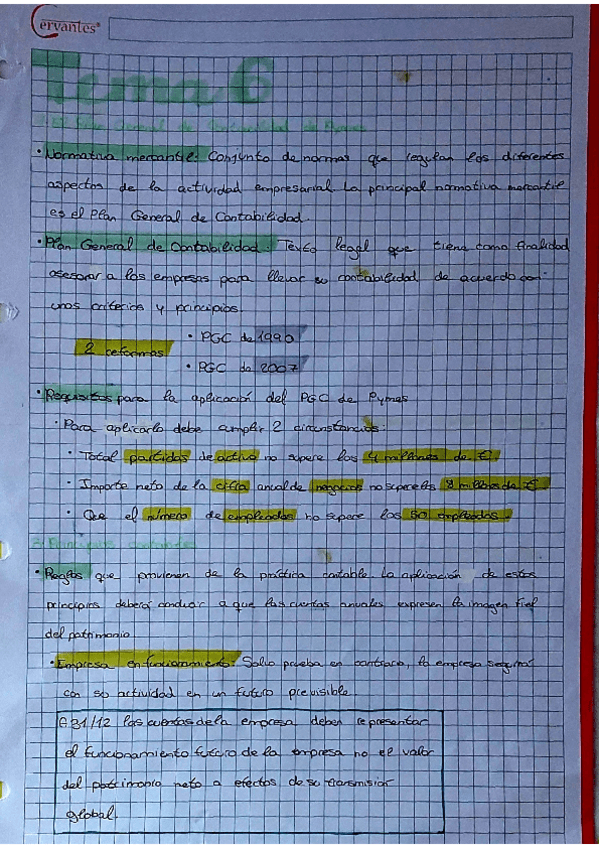 Cervantes®
Tema 6
Plan General de Contabilidad de Pymes
• Normativa mercantil: Conjunto de normas que regulan los diferentes
aspectos de la actividad empresarial. La principal normativa mercantil
es el Plan General de Contabilidad.
• Plan General de Contabilidad: Texto legal que tiene como finalidad
asesorar a las empresas para llevar su contabilidad de acuerdo con
unos criterios y principios.
• PGC de 1990
2 reformas
• PGC de 2007
• Requisitos para la aplicación del PGC de Pymes
• Para aplicarlo debe cumplir 2 circunstancias:
• Total partidas de activo no supere los 4 millones de €
• Importe neto de la cifra anual de negocios no supere los 8 millones de €
• Que el número de empleados no supere los 50 empleados.
3. Principios contables
• Reglas que provienen de la práctica contable. La aplicación de estos
principios deberá conducir a que las cuentas anuales expresen la imagen fiel
del patrimonio
• Empresa en funcionamiento: Salvo prueba en contrario, la empresa seguirá
con su actividad en un futuro previsible.
A 31/12 las cuentas de la empresa deben representar
el funcionamiento futuro de la empresa no el valor
del patrimonio neto a efectos de su transmisión
global.